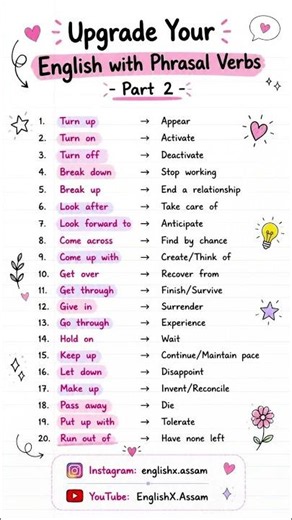 Upgrade Your
English with Phrasal Verbs
- Part 2 -
1. Turn up → Appear
2. Turn on → Activate
3. Turn off → Deactivate
4. Break down → Stop working
5. Break up → End a relationship
6. Look after → Take care of
7. Look forward to → Anticipate
8. Come across → Find by chance
9. Come up with → Create/Think of
10. Get over → Recover from
11. Get through → Finish/Survive
12. Give in → Surrender
13. Go through → Experience
14. Hold on → Wait
15. Keep up → Continue/Maintain pace
16. Let down → Disappoint
17. Make up → Invent/Reconcile
18. Pass away → Die
19. Put up with → Tolerate
20. Run out of → Have none left
Instagram: englishx.assam
YouTube: EnglishX.Assam